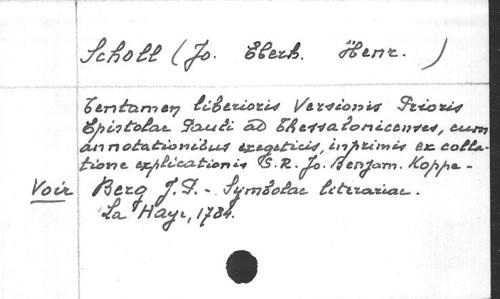 Scholl (Jo. Eberh. Henr. )
Tentamen liberioris Versionis Prioris
Epistolae Pauli ad Thessalonicenses, cum
annotationibus exegeticis, inprimis ex colla-
tione explicationis S.R. Jo. Benjam. Koppe -
Voir Berg J.P. - Symbolae literariae.
La Haye, 1784.